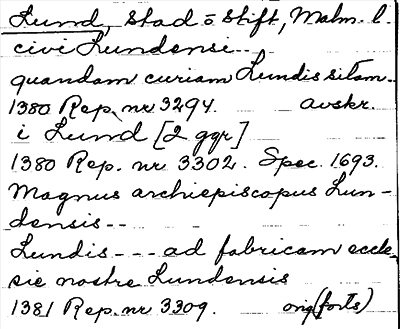 Lund, stad o stift, Malm. l.
civi Lundensi--
quandam curiam Lundis sitam--
1380 Rep. nr 3294. avskr.
i Lund [2 ggr]
1380 Rep. nr 3302. Spec. 1693.
Magnus archiepiscopus Lun-
densis--
Lundis --- ad fabricam eccle-
sie nostre Lundensis
1381 Rep. nr 3309. orig (forts)